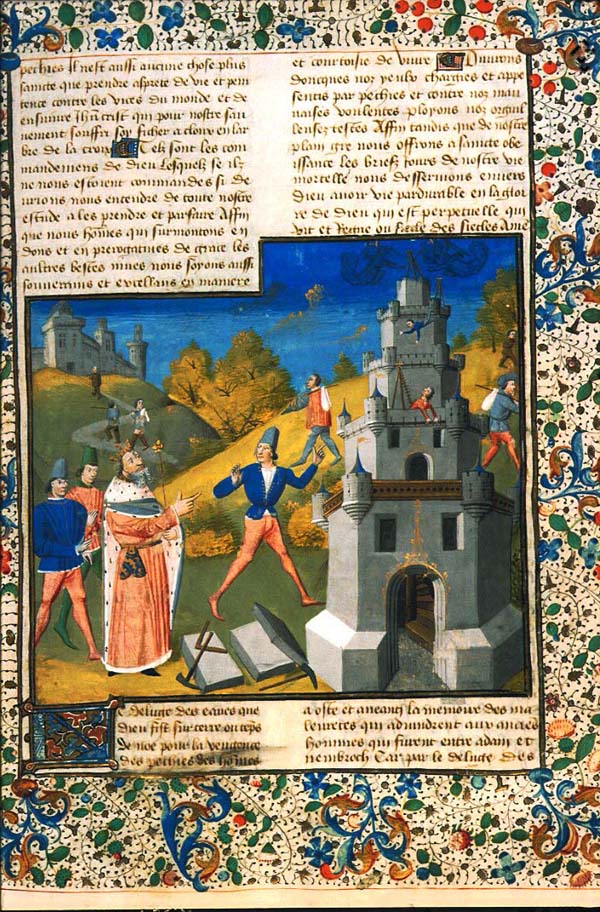 pechies Il nest aussi aucune chose plus
saincte que prendre asprete de vie et peni
tence contre les vices du monde et de
ensuivre Ihucrist qui pour nostre sau
uement souffri soy ficher a cloix en lar
bre de la croix Telz sont les com
mandemens de dieu Lesquelz se ilz
ne nous estoient commandes si de
urions nous entendre de toute nostre
estude a les prendre et parfaire Affin
que nous homes qui surmontons en
dons et en prerogatiues de grace les
aultres bestes mues nous soyons aussi
souuerains et excellans en maniere
et courtoise de viure Ouurons
doncques noz yeulx chargies et appe
sentis par pechies et contre noz mau
uaises voulentes ployons noz orguil
leuses testes Affin tandis que de nostre
plain gre nous offrons a saincte obe
issance les briefz jours de nostre vie
mortelle nous desseruions enuers
dieu auoir vie pardurable en la gloi
re de dieu qui est perpetuelle qui
vit et Regne ou siecle des siecles Ame
Le deluge des eaues que
dieu fist sur terre ou temps
de noe pour la vengence
des pechies des homes
a oste et aneanti la memoire des ma
leuretes qui aduindrent aux ancies
hommes qui furent entre adam et
nembroth Car par le deluge des